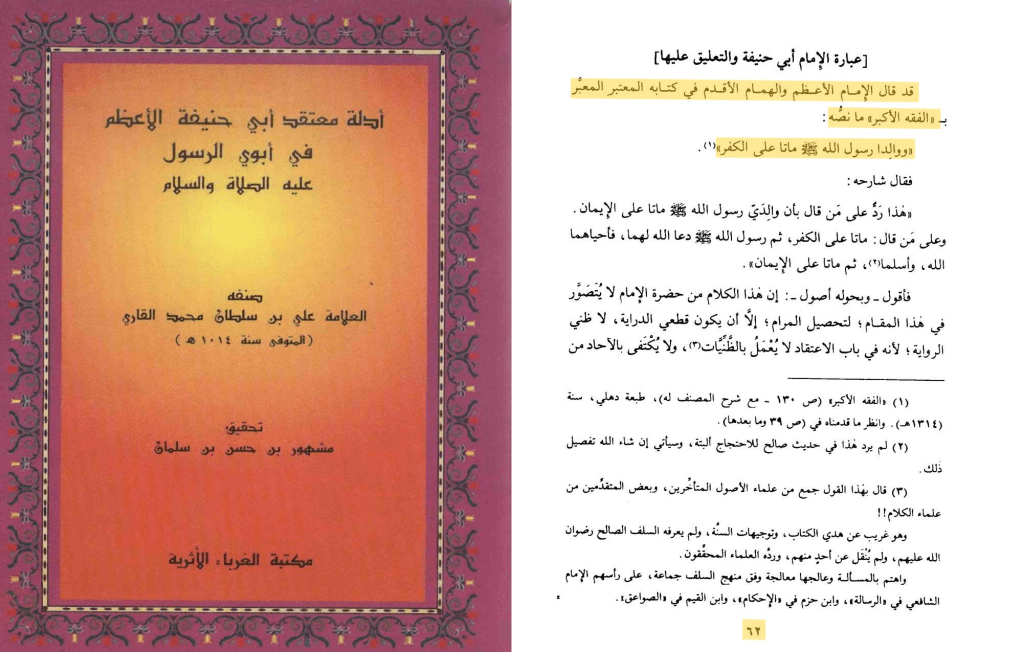 أدلة معتقد أبي حنيفة الأعظم
في أبوي الرسول
عليه الصلاة والسلام
صنفه
العلامة علي بن سلطان محمد القاري
(المتوفى سنة ١٠١٤ هـ)
تحقيق
مشهور بن حسن بن سلمان
مكتبة الغرباء الأثرية
[عبارة الإمام أبي حنيفة والتعليق عليها]
قد قال الإمام الأعظم والهمام الأقدم في كتابه المعتبر المعبَّر
بـ «الفقه الأكبر» ما نصُّه:
«ووالِدا رسول الله ﷺ ماتا على الكفر»(١).
فقال شارحه:
«هٰذا رَدٌّ على مَن قال بأن والِدَيّ رسول الله ﷺ ماتا على الإيمان.
وعلى مَن قال: ماتا على الكفر، ثم رسول الله ﷺ دعا الله لهما، فأحياهما
الله، وأسلما(٢)، ثم ماتا على الإيمان».
فأقول ـ وبحوله أصول ـ: إن هٰذا الكلام من حضرة الإمام لا يُتَصَوَّر
في هٰذا المقام؛ لتحصيل المرام؛ إلَّا أن يكون قطعي الدراية، لا ظني
الرواية؛ لأنه في باب الاعتقاد لا يُعْمَلُ بالظَّنِّيَّات(٣)، ولا يُكْتَفى بالآحاد من
(١) «الفقه الأكبر» (ص ١٣٠ ـ مع شرح المصنف له)، طبعة دهلي، سنة
(١٣١٤هـ). وانظر ما قدمناه في (ص ٣٩ وما بعدها).
(٢) لم يرد هٰذا في حديث صالح للاحتجاج ألبتة، وسيأتي إن شاء الله تفصيل
ذٰلك.
(٣) قال بهٰذا القول جمع من علماء الأصول المتأخِّرين، وبعض المتقدِّمين من
علماء الكلام!!
وهو غريب عن هدي الكتاب، وتوجيهات السنَّة، ولم يعرفه السلف الصالح رضوان
الله عليهم، ولم يُنْقَل عن أحدٍ منهم، وردَّه العلماء المحقِّقون.
واهتم بالمسألة وعالجها معالجة وفق منهج السلف جماعة، على رأسهم الإمام
الشافعي في «الرسالة»، وابن حزم في «الإحكام»، وابن القيم في «الصواعق».
٦٢